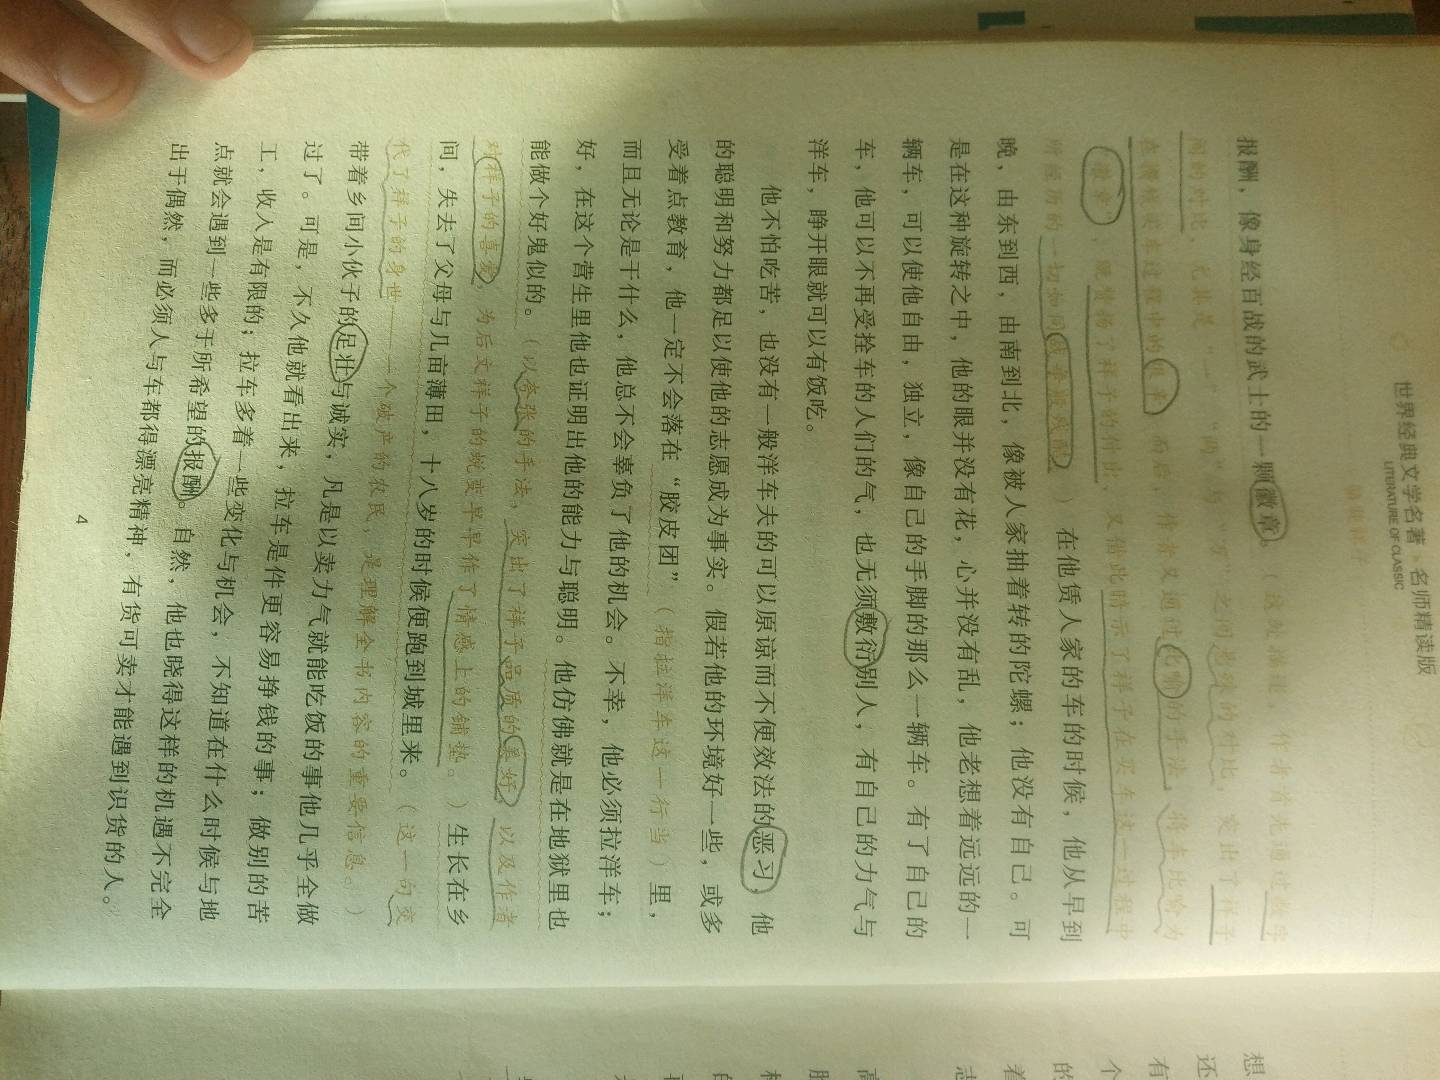 世界经典文学名著·名师精读版
LITERATURE OF CLASSIC
骆驼祥子
报酬,像身经百战的武士的一颗徽章。(这处描写,作者首先通过数字
间的对比,尤其是“一”“两”与“万”之间悬殊的对比,突出了祥子
在攒钱买车过程中的艰辛,而后,作者又通过比喻的手法,将车比喻为
“徽章”,既赞扬了祥子的付出,又借此暗示了祥子在买车这一过程中
所经历的一切如同战争般残酷。)在他赁人家的车的时候,他从早到
晚,由东到西,由南到北,像被人家抽着转的陀螺;他没有自己。可
是在这种旋转之中,他的眼并没有花,心并没有乱,他老想着远远的一
辆车,可以使他自由,独立,像自己的手脚的那么一辆车。有了自己的
车,他可以不再受拴车的人们的气,也无须敷衍别人,有自己的力气与
洋车,睁开眼就可以有饭吃。
他不怕吃苦,也没有一般洋车夫的可以原谅而不便效法的恶习,他
的聪明和努力都足以使他的志愿成为事实。假若他的环境好一些,或多
受着点教育,他一定不会落在“胶皮团”(指拉洋车这一行当)里,
而且无论是干什么,他总不会辜负了他的机会。不幸,他必须拉洋车;
好,在这个营生里他也证明出他的能力与聪明。他仿佛就是在地狱里也
能做个好鬼似的。(以夸张的手法,突出了祥子品质的美好,以及作者
对祥子的喜爱,为后文祥子的蜕变早早作了情感上的铺垫。)生长在乡
间,失去了父母与几亩薄田,十八岁的时候便跑到城里来。(这一句交
代了祥子的身世——一个破产的农民,是理解全书内容的重要信息。)
带着乡间小伙子的足壮与诚实,凡是以卖力气就能吃饭的事他几乎全做
过了。可是,不久他就看出来,拉车是件更容易挣钱的事;做别的苦
工,收入是有限的;拉车多着一些变化与机会,不知道在什么时候与地
点就会遇到一些多于所希望的报酬。自然,他也晓得这样的机遇不完全
出于偶然,而必须人与车都得漂亮精神,有货可卖才能遇到识货的人。
4
想
还
有
个
的
着
志
高